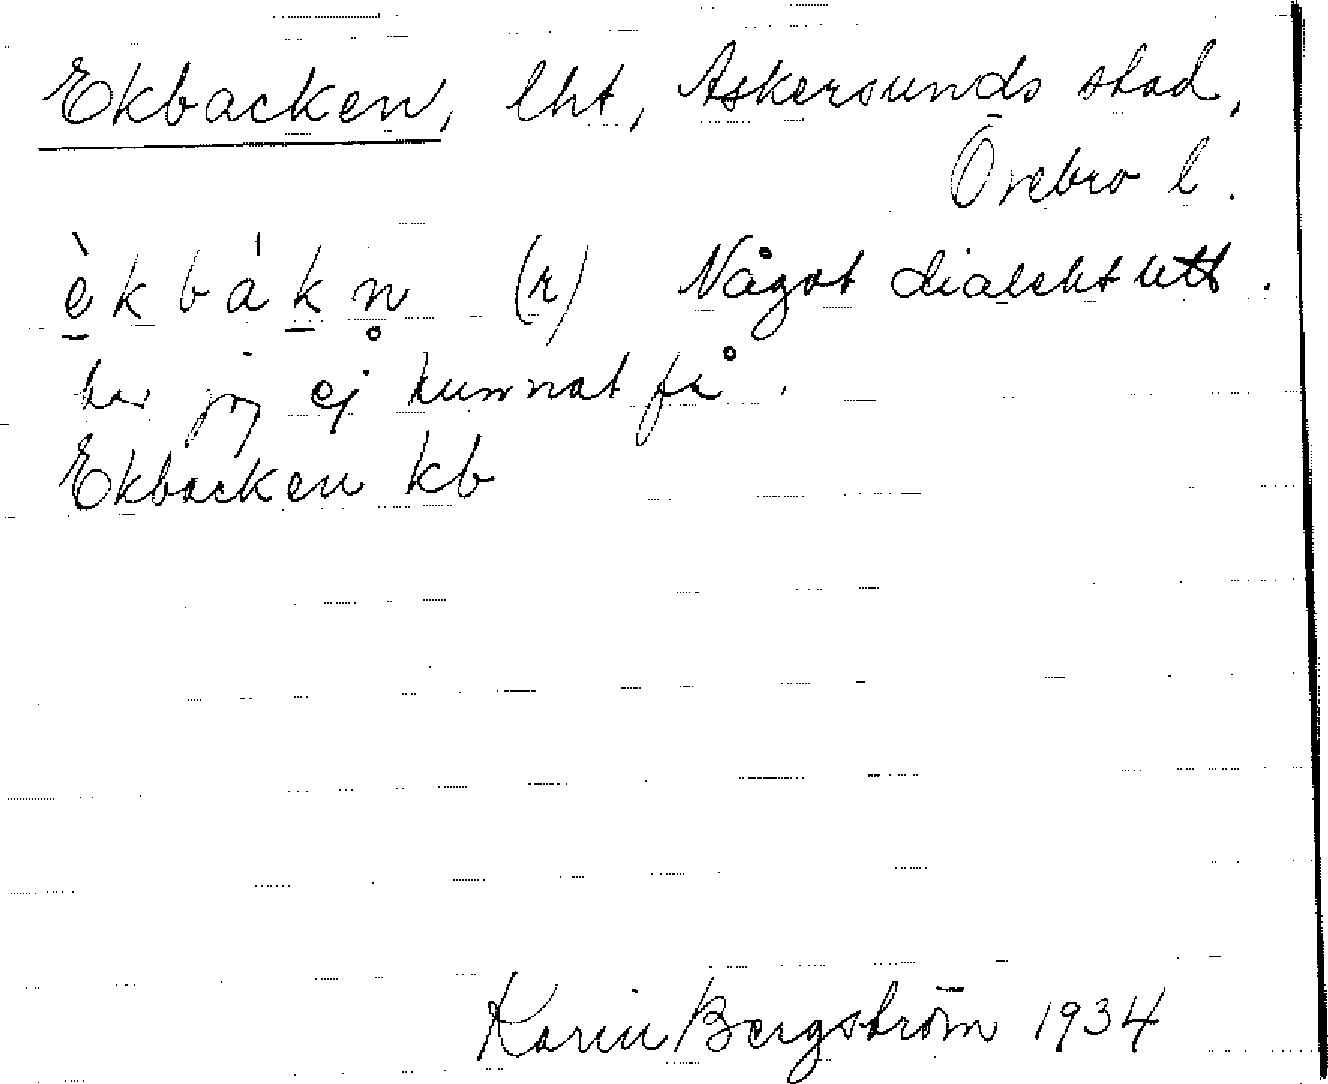 Ekbacken, lht, Askersunds stad,
Örebro l.
èkbákn̥ (r) Något dialektutt.
har jag ej kunnat få.
Ekbacken kb
Karin Bergström 1934